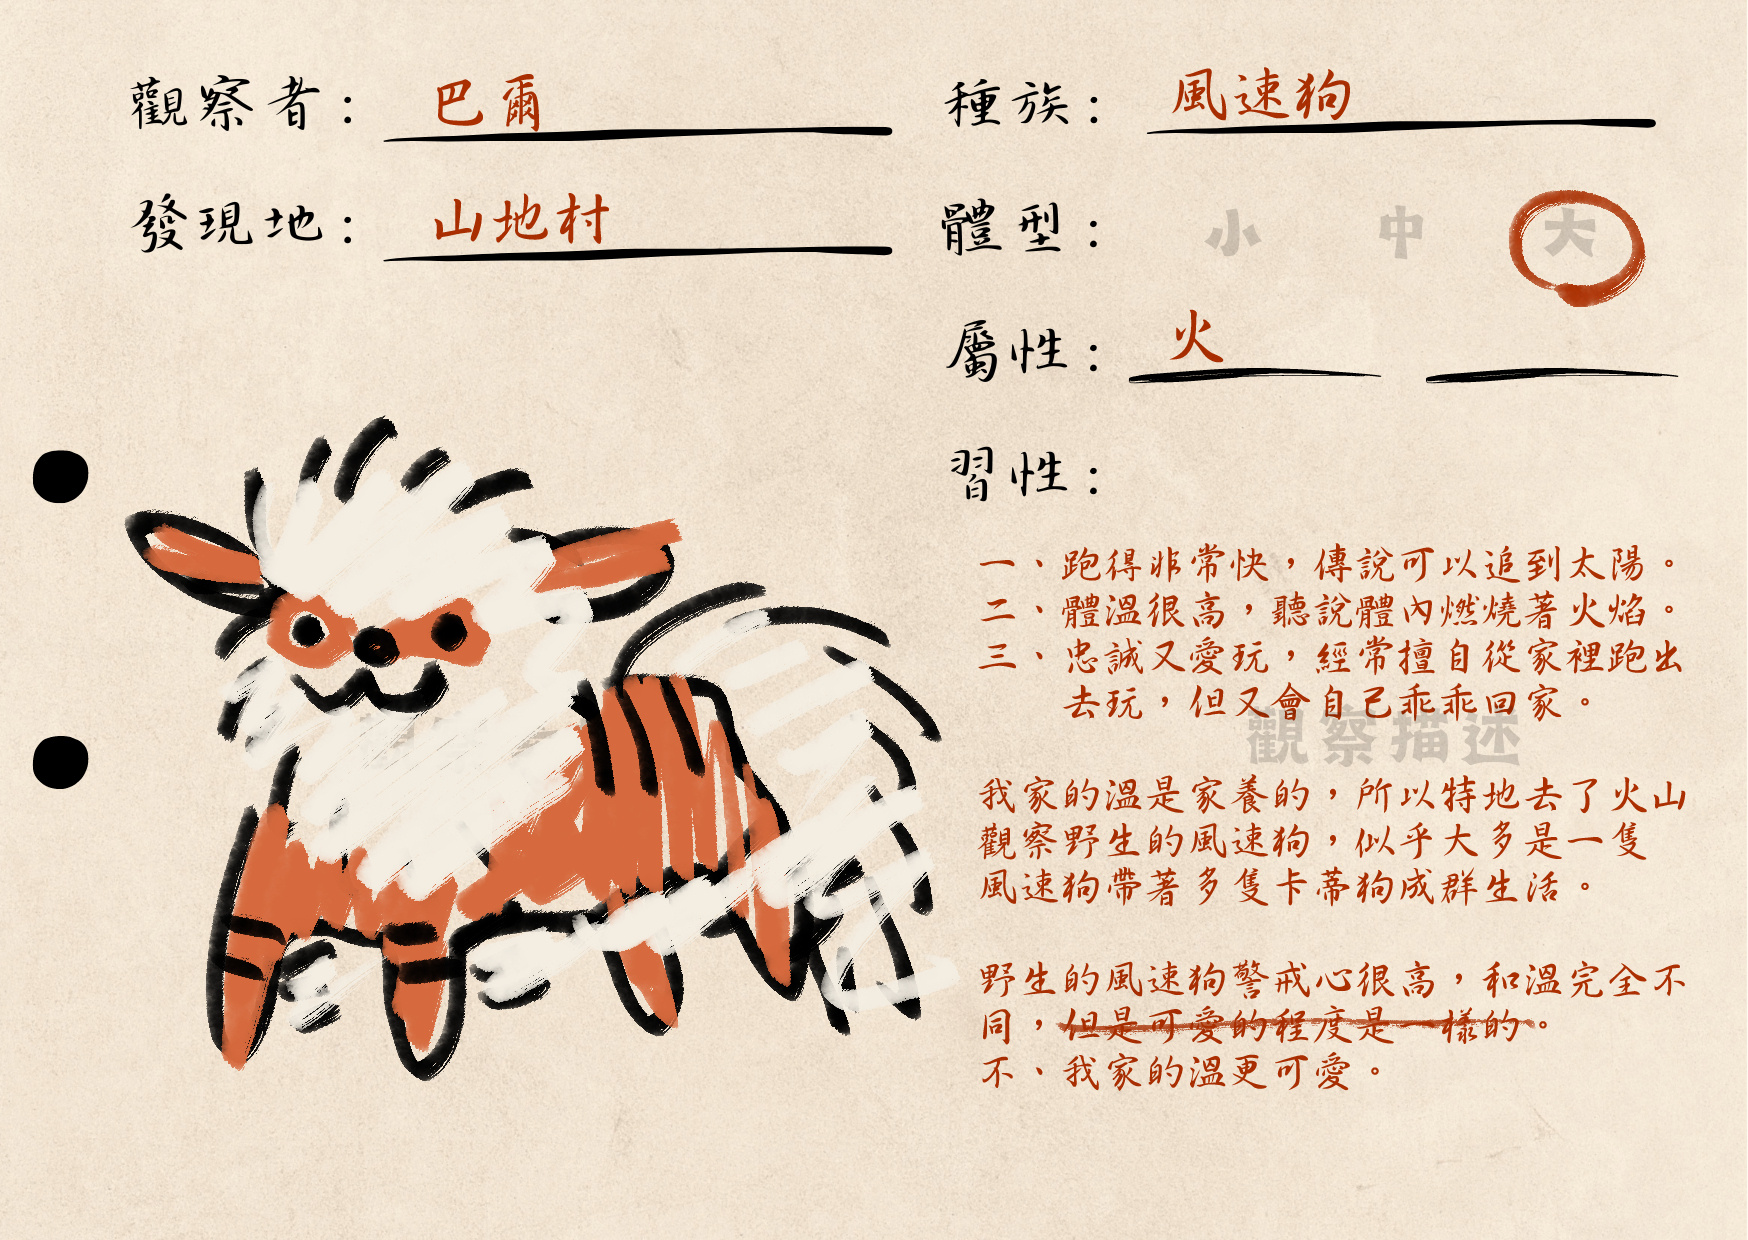 觀察者： 巴爾
發現地： 山地村
種族： 風速狗
體型： 小 中 大
屬性： 火
習性：
一、跑得非常快，傳說可以追到太陽。
二、體溫很高，聽說體內燃燒著火焰。
三、忠誠又愛玩，經常擅自從家裡跑出
去玩，但又會自己乖乖回家。
觀察描述
我家的溫是家養的，所以特地去了火山
觀察野生的風速狗，似乎大多是一隻
風速狗帶著多隻卡蒂狗成群生活。
野生的風速狗警戒心很高，和溫完全不
同，但是可愛的程度是一樣的。
不、我家的溫更可愛。